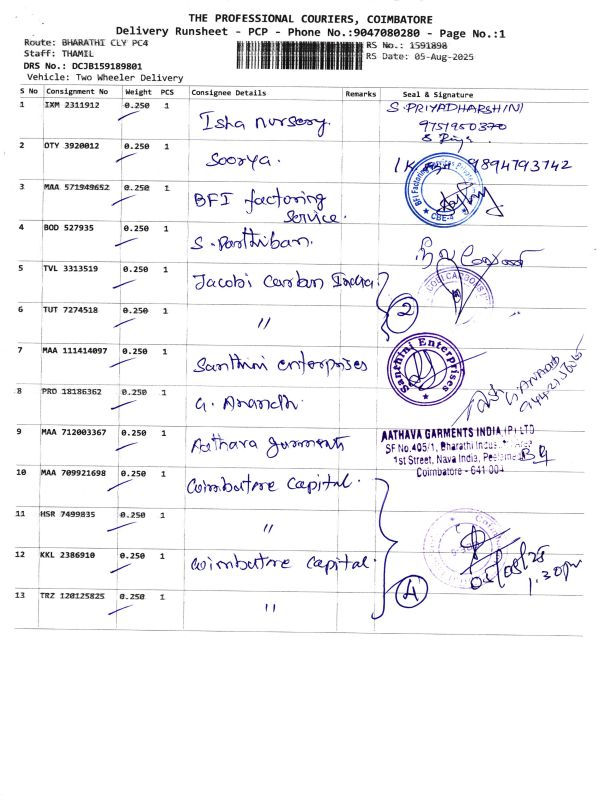 THE PROFESSIONAL COURIERS, COIMBATORE
Delivery Runsheet - PCP - Phone No.:9047080280 - Page No.:1
Route: BHARATHI CLY PC4
RS No.: 1591898
Staff: THAMIL
RS Date: 05-Aug-2025
DRS No.: DCJB159189801
Vehicle: Two Wheeler Delivery
S No Consignment No Weight PCS Consignee Details Remarks Seal & Signature
1 IXM 2311912 0.250 1 Isha nursery. S.PRIYADHARSHINI
9751950370
2 OTY 3920012 0.250 1 Soorya. 9894793742
3 MAA 571949652 0.250 1 BFI factoring service.
CBE-4
4 BOD 527935 0.250 1 S. Parthiban.
5 TVL 3313519 0.250 1 Jacobi Carbon India
6 TUT 7274518 0.250 1 〃 2
7 MAA 111414097 0.250 1 Santhini enterprises Santhini Enterprises
8 PRO 18186362 0.250 1 G. Anandh. G. ANANDH
9 MAA 712003367 0.250 1 Aathava garments AATHAVA GARMENTS INDIA (P) LTD
SF No.405/1, Bharathi
1st Street, Nava India,
Coimbatore - 641 004
10 MAA 709921698 0.250 1 Coimbatore Capital.
11 HSR 7499835 0.250 1 〃
12 KKL 2386910 0.250 1 Coimbatore Capital. 05/08/25
1.30pm
13 TRZ 120125825 0.250 1 〃 4